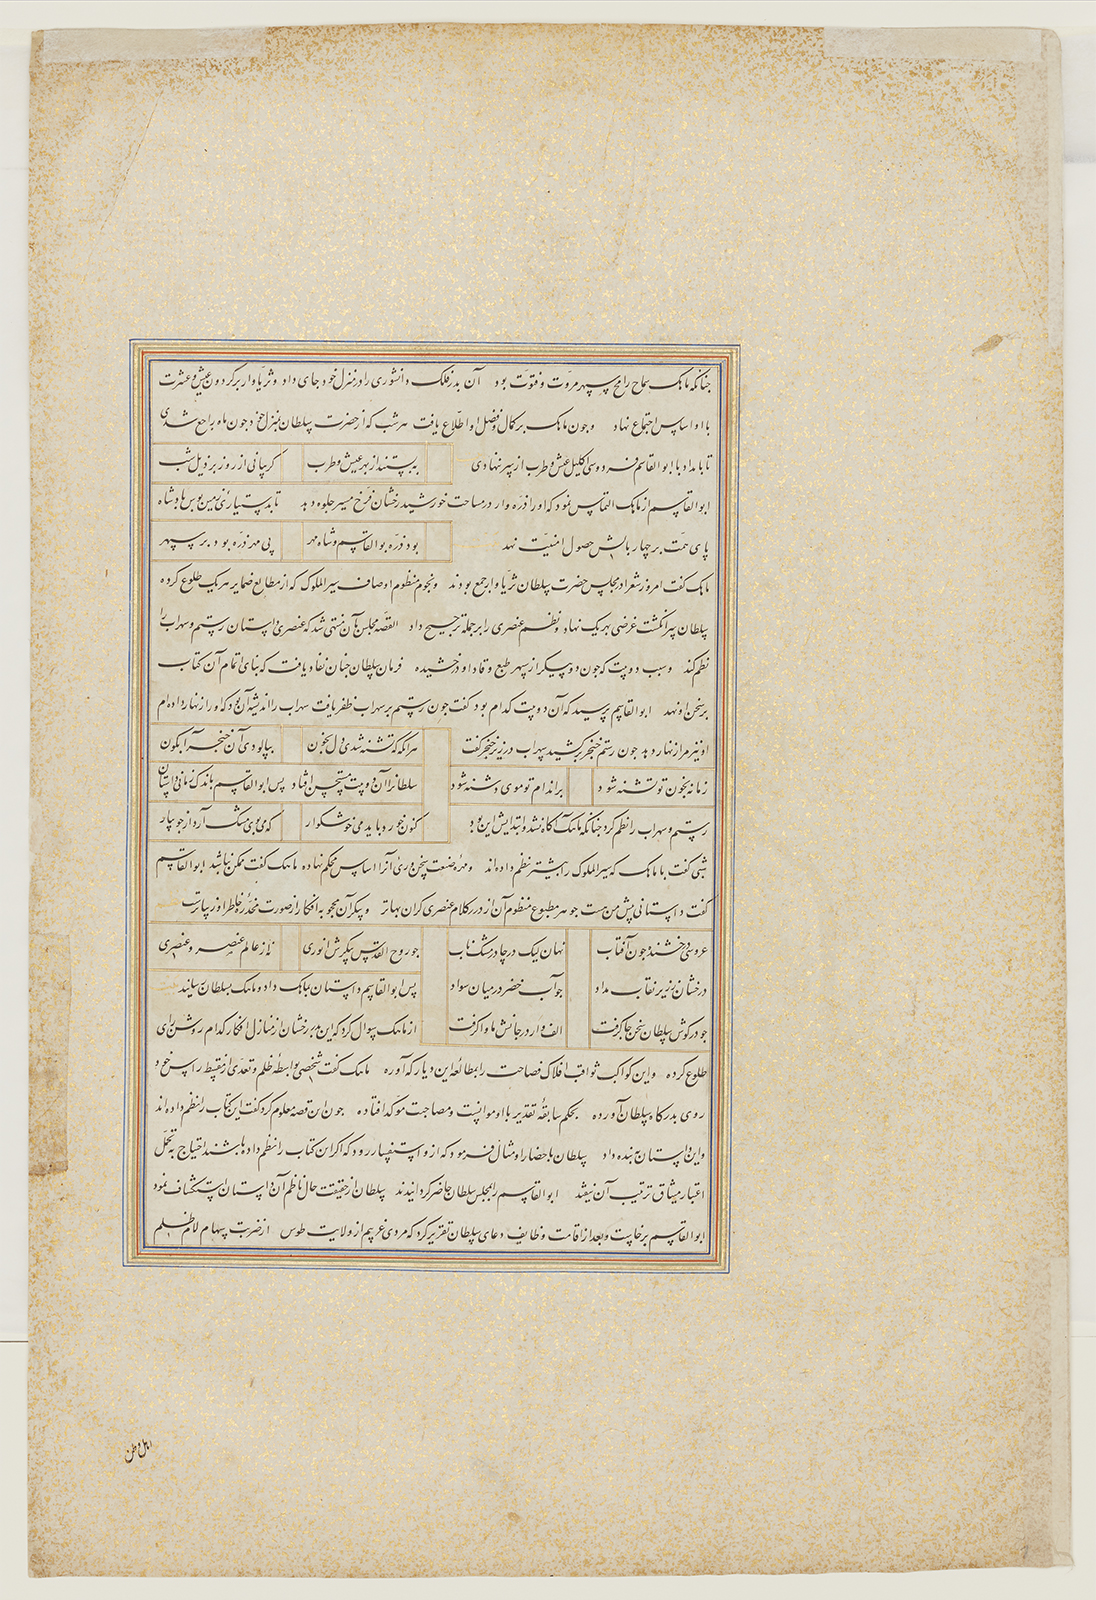 جنانکه ماهک سماح رامح سپهر مروّت و فتوّت بود آن بدر فلک دانشوری را در منزل خود جای داد و ثریّا وار بر گردون عیش و عشرت
با او اساس اجتماع نهاد و جون ماهک بر کمال و فضل او اطّلاع یافت هر شب که از حضرت سلطان بمنزل خود جون ماه راجع شدی
تا بامداد با ابوالقاسم فردوسی اکلیل عیش و طرب از سر نهادی به بستند از بهر عیش و طرب گریبانی از روز بر ذیل شب
ابوالقاسم از ماهک التماس نمود که او را ذرّه وار در مساحت خورشید رخشان فرّخ مسیر جلوه دهد تا بدستیاری زمین بوس بادشاه
پای همّت بر چهار بالش حصول امنیّت نهد بود ذرّه بوالقاسم و شاه مهر پی مهر ذرّه بود بر سپهر
ماهک گفت امروز شعرا در مجلس حضرت سلطان ثریّا وار جمع بودند و نجوم منظوم اوصاف سیر الملوک که از مطالع ضمایر هر یک طلوع کرده
سلطان سرانگشت عرضی بهر یک نهاد و نظم عنصری را بر جمله ترجیح داد القصّه مجلس بآن منتهی شد که عنصری داستان رستم و سهراب را
نظم کند و سبب دو بیت که جون دو پیکر از سپهر طبع وقاد او درخشیده فرمان سلطان جنان نفاد یافت که بنای اتمام آن کتاب
بر سخن او نهد ابوالقاسم پرسید که آن دو بیت کدام بود گفت جون رستم بر سهراب ظفر یافت سهراب را اندیشه آن بود که او را زنهار داده ام
او نیز مرا زنهار دهد جون رستم خنجر برکشید سهراب در زیر خنجر گفت هر آنگه که تشنه شدی دل بخون بیالودی آن خنجر آبگون
زمانه بخون تو تشنه شود بر اندام تو موی دشنه شود سلطان را آن دو بیت مستحسن افتاد پس ابوالقاسم باندک زمانی داستان
رستم و سهراب را نظم کرد جنانکه ماهک آگاه نشد و ابتدایش این بود کنون خورد باید می خوشگوار که می بوی مشک آرد از جویبار
شبی گفت با ماهک که سیر الملوک را پیشتر نظم داده اند و مهره صنعت سخنوری آنرا اساس محکم نهاده ماهک گفت ممکن نباشد ابوالقاسم
گفت داستانی پیش من هست جوهر مطبوع منظوم آن از درر کلام عنصری گران بهاتر و پیکر آن محجوبه افکار از صورت مخدّره خاطر او زیباتر
عروسی درخشنده جون آفتاب نهان لیک در جادر مشک ناب جو روح القدس پیکرش انوری نه از عالم عنصر و عنصری
درخشان بزیر نقاب مداد جو آب خضر در میان سواد پس ابوالقاسم داستان بماهک داد و ماهک بسلطان رسانید
جو در گوش سلطان سخن جا گرفت الف وار در جانش ماوا گرفت از ماهک سوال کرد که این مه رخشان از منازل افکار کدام روشن رای
طلوع کرده و این کواکب ثواقب افلاک فصاحت را بطالعه این دیار که آورده ماهک گفت شخصی بواسطه ظلم و تعدّی از مسقط راس خود
روی بدرگاه سلطان آورده بحکم سابقه تقدیر با او موانست و مصاحبت موکد افتاده جون از این قصه معلوم کرد گفت این کتاب را نظم داده اند
و این داستان به بنده داد سلطان باحضار او مثال فرمود که از و استفسار رود که اگر این کتاب را نظم داده باشند احتیاج به تحمّل
اعتبار میثاق ترتیب آن نیفتد ابوالقاسم را بمجلس سلطان حاضر گردانیدند سلطان از حقیقت حال ناظم آن داستان استکشاف نمود
ابوالقاسم برخاست و بعد از اقامت وظایف دعای سلطان تقریر کرد که مردی غریبم از ولایت طوس از ضربت سهام لاظلم
اهل وطن